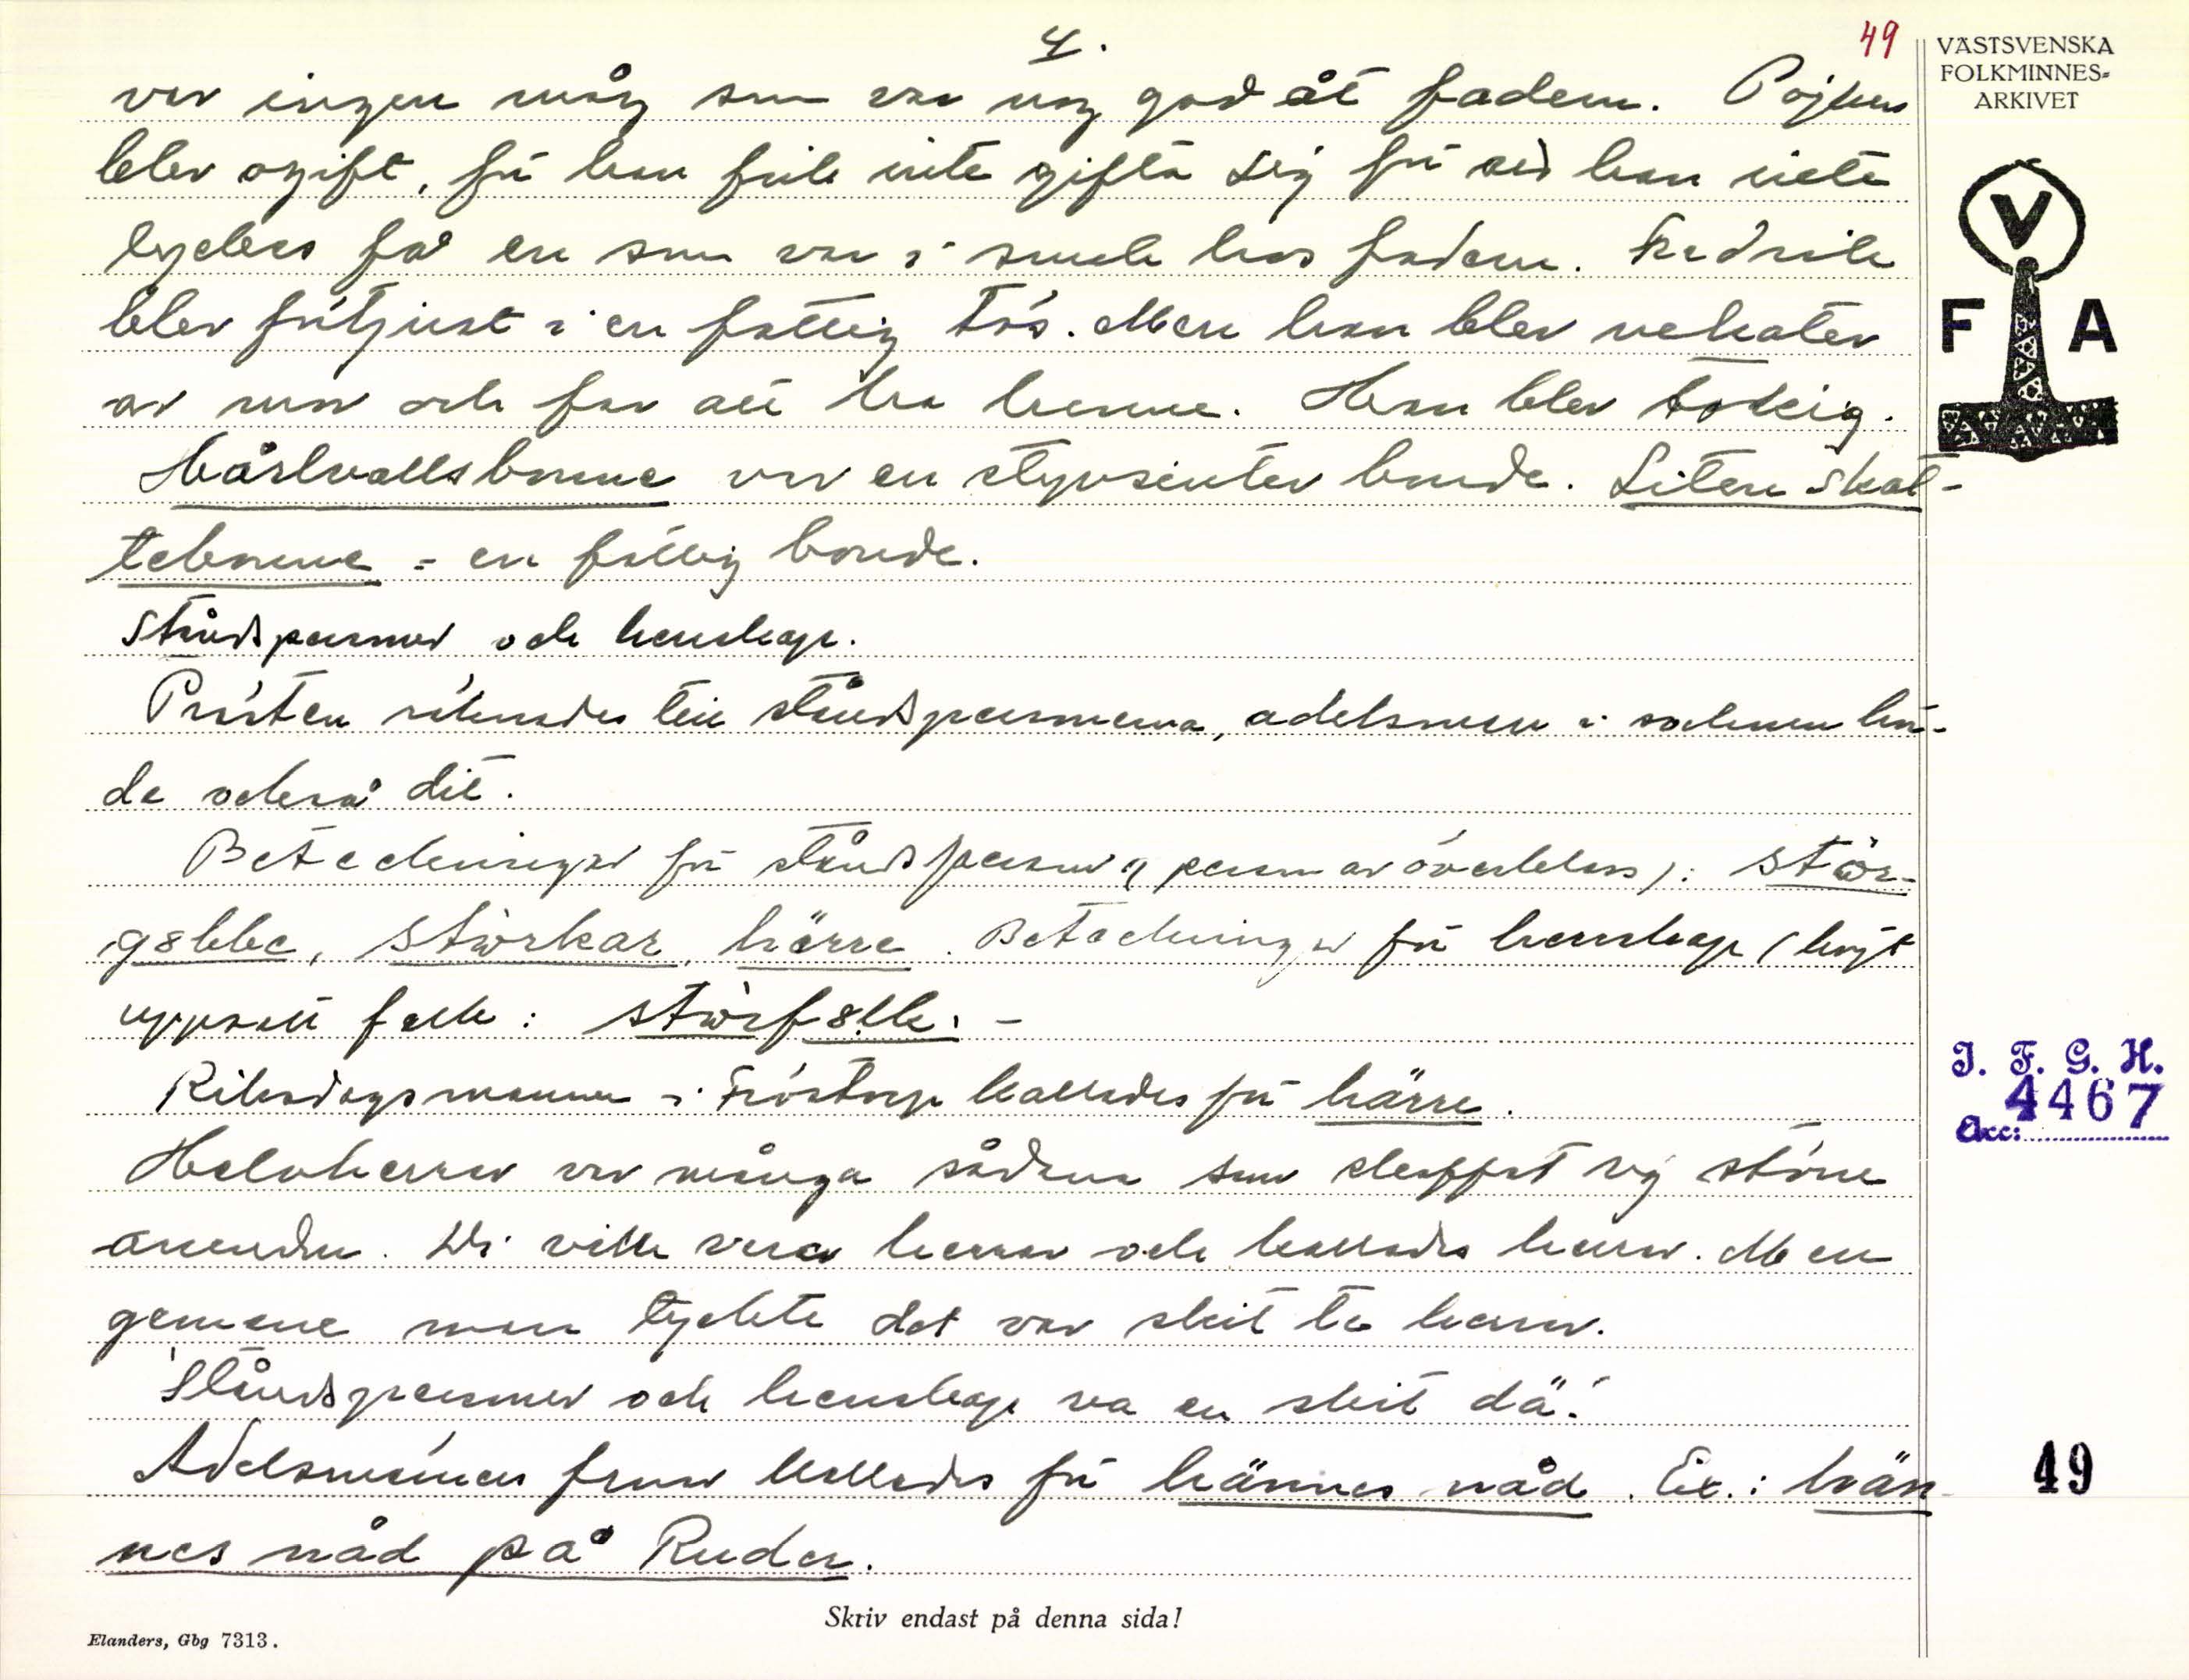 4.
49
VÄSTSVENSKA
FOLKMINNES-
ARKIVET
var ingen måg som var nog god åt fadern. Pojken
blev ogift, för han fick inte gifta sig för att han inte
lyckes få en som var i smak hos fadern. Fredrik
blev förtjust i en fattig tös. Men han blev nekater
av mor och far att ha henne. Han blev tokig.
V
F A
Hårlvallsbonne var en styvsinter bonde. Liten skat-
tebonne = en fattig bonde.
Ståndspersoner och herrskap.
Prästen räknades till ståndspersonerna, adelsmän i socknen hör-
de också dit.
Beteckningar för ståndsperson (person av överklass): stòr-
gubbe, stòrkar, härre. Beteckningar för herrskap (högt
uppsatt folk: stòrfolk. -
Riksdagsmannen i Fröstorp kallades för härre.
I. F. G. H.
Acc: 4467
Halvherrar var många sådana som skaffat sig större
arenden. De ville vara herrar och kallades herrar. Men
gemene man tyckte det var skit te herrar.
'Ståndspersoner och herrskap va en skit dä.'
Adelsmännens fruar kallades för hännes nåd. Ex.: hän-
nes nåd på Ruder.
49
Skriv endast på denna sida!
Elanders, Gbg 7313.